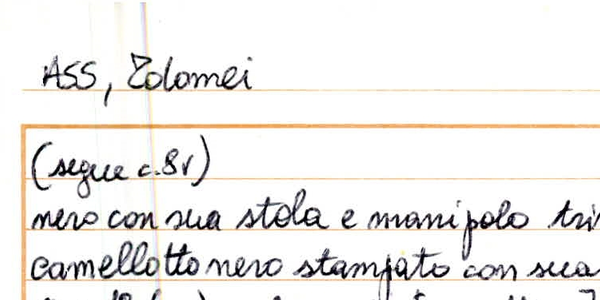 ASS, Tolomei
(segue c. 8v)
nero con sua stola e manipolo
camellotto nero stampato con sua